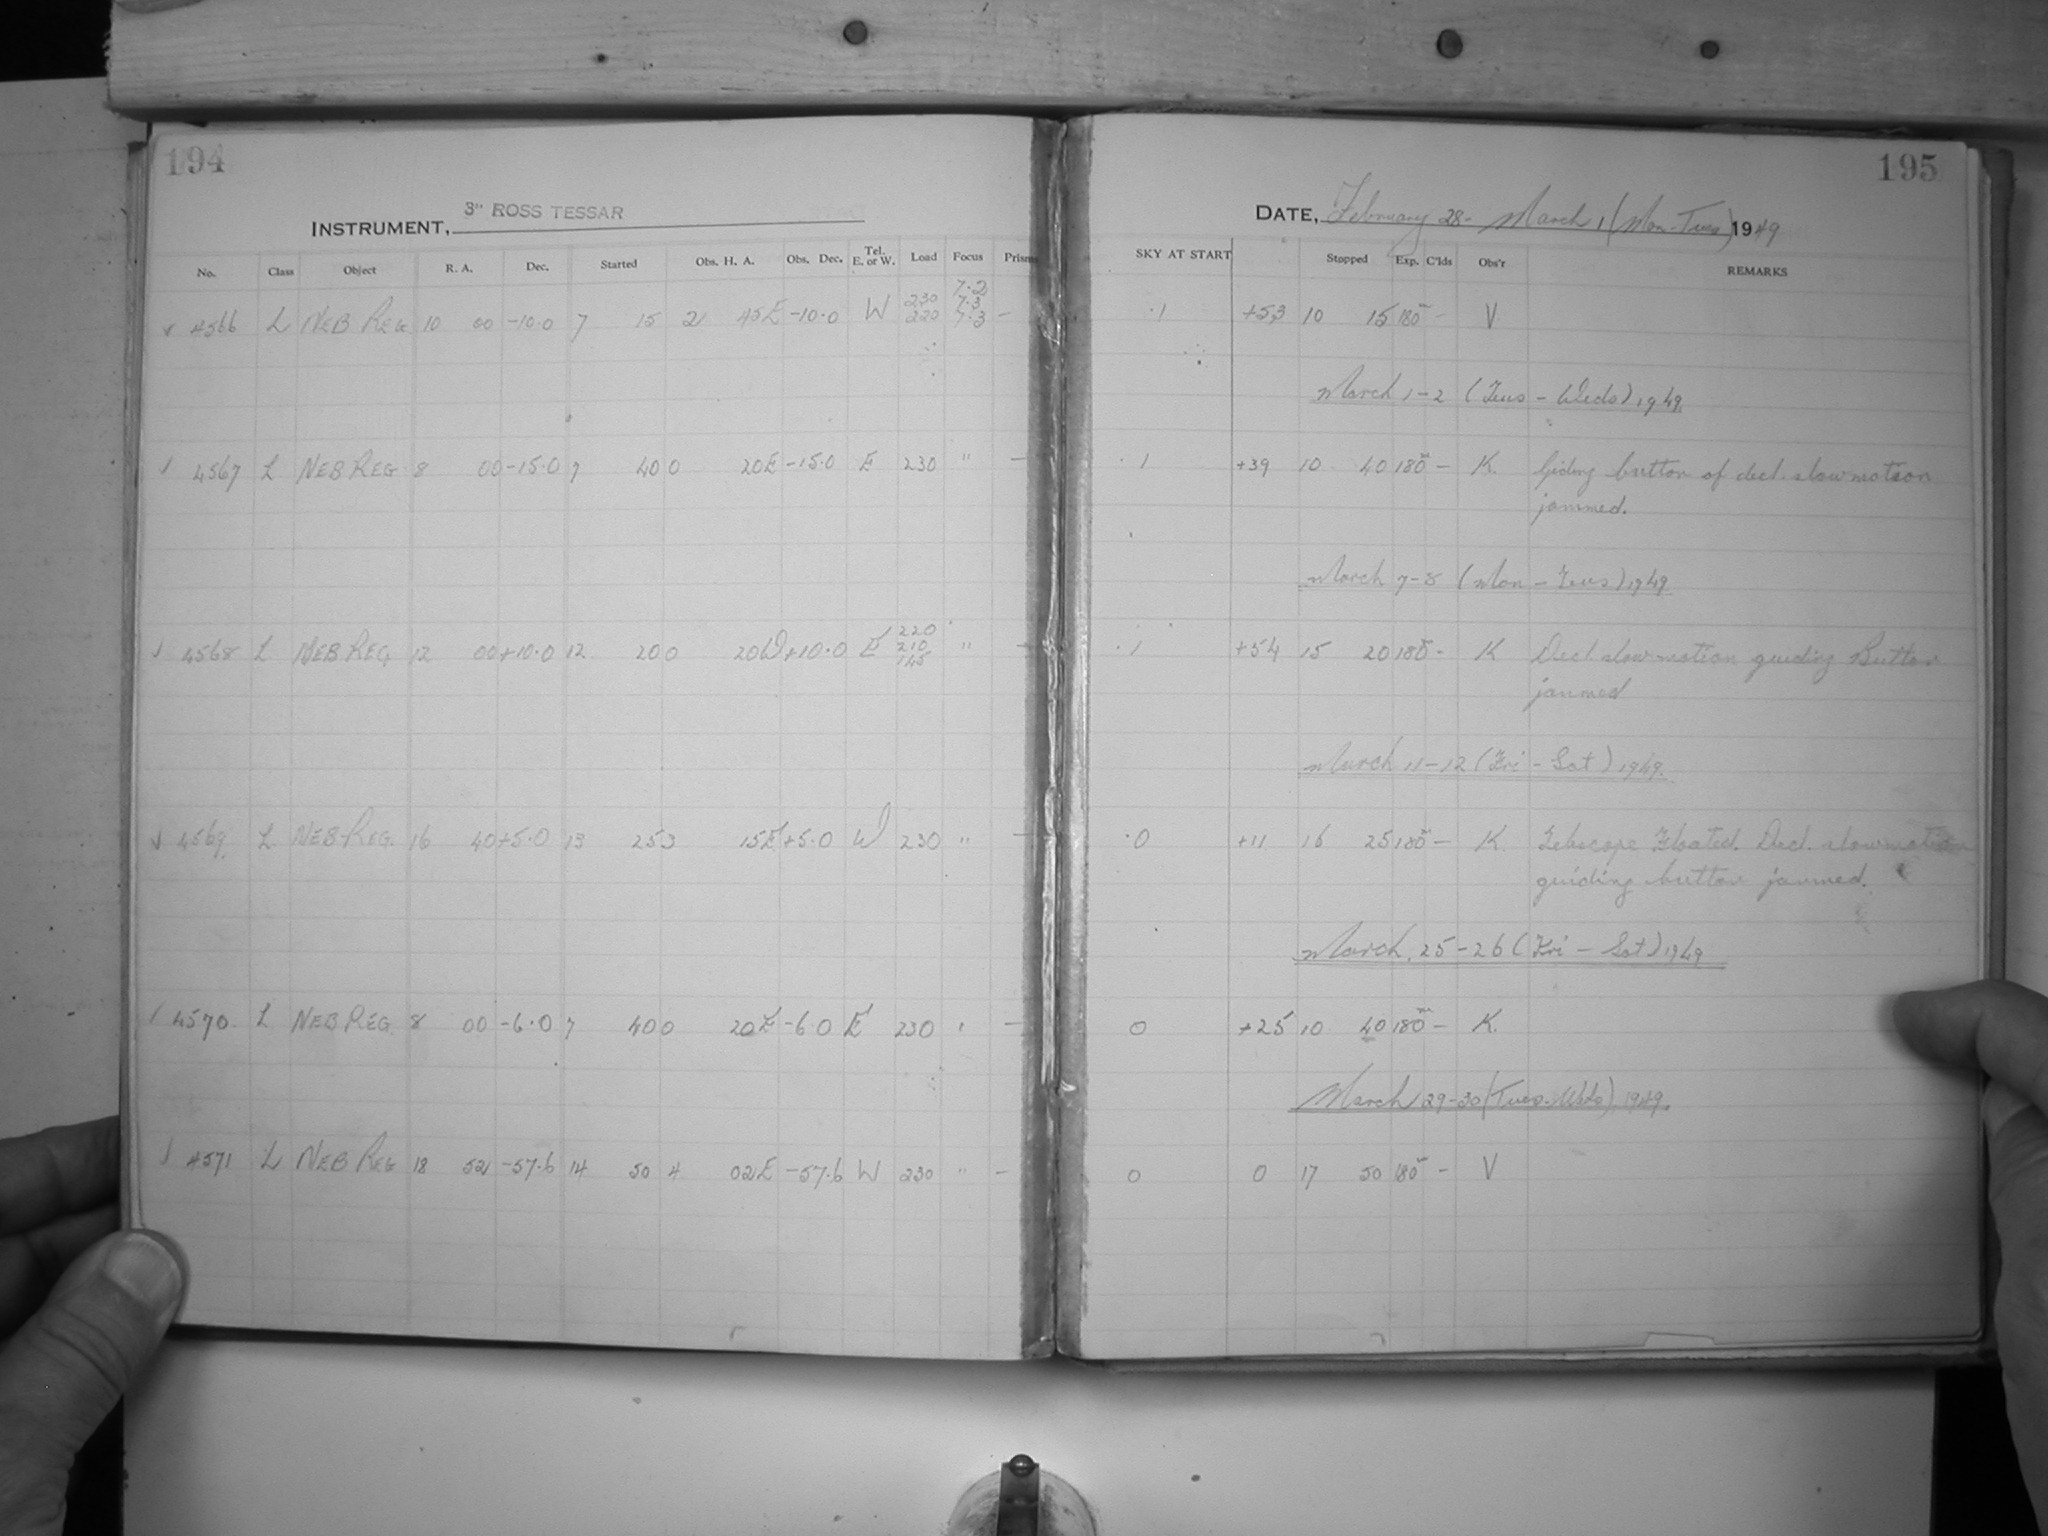 194
INSTRUMENT, 3" ROSS TESSAR
No. Class Object R. A. Dec. Started Obs. H. A. Obs. Dec. Tel. E. or W. Load Focus Prism
4566 L NEB REG. 10 00 -10.0 7 15 2 45E -10.0 W 230 220 7.2 7.3 7.3 -
4567 L NEB REG 8 00 -15.0 7 40 0 20E -15.0 E 230 " -
4568 L NEB REG 12 00 +10.0 12 20 0 20W +10.0 E 220 210 145 " -
4569 L NEB-REG. 16 40 +5.0 13 25 3 15E +5.0 W 230 " -
4570 L NEB REG. 8 00 -6.0 7 40 0 20E -6.0 E 230 " -
4571 L NEB REG 18 52 -57.6 14 50 4 02E -57.6 W 230 " -
195
DATE, February 28 - March 1 (Mon-Tues) 1949
SKY AT START Stopped Exp. C'lds Obs'r REMARKS
.1 +53 10 15 180m - V
March 1-2 (Tues - Weds) 1949.
.1 +39 10 40 180m - K. Giding button of decl. slow motion
jammed.
March 7-8 (Mon - Tues) 1949.
.1 +54 15 20 180m - K Decl slow motion guiding Button
jammed
March 11-12 (Fri - Sat) 1949.
.0 +11 16 25 180m - K. Telescope Floated. Decl. slowmotion
guiding button jammed.
March 25-26 (Fri - Sat) 1949
0 +25 10 40 180m - K.
March 29-30 (Tues-Weds), 1949.
0 0 17 50 180m - V